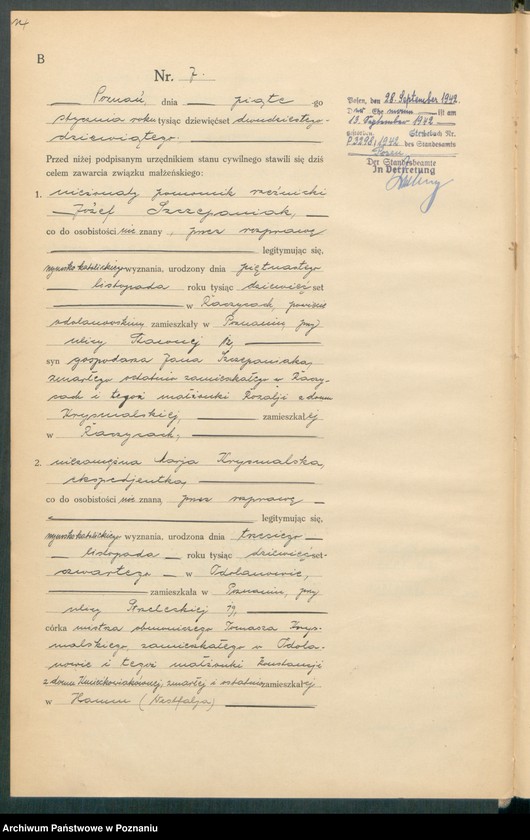 B
Nr. 7.
Poznań, dnia piąte go
stycznia roku tysiąc dziewięćset dwudziestego-
dziewiątego.
Przed niżej podpisanym urzędnikiem stanu cywilnego stawili się dziś
celem zawarcia związku małżeńskiego:
1. nieżonaty pomocnik rzeźnicki
Józef Szczepaniak,
co do osobistości nie znany, przez rozprawę
legitymując się,
rzymsko katolickiego wyznania, urodzony dnia piętnastego
listopada roku tysiąc dziewięćset
w Raczycach, powiecie
odolanowskim zamieszkały w Poznaniu, przy
ulicy
syn gospodarza Jana Szczepaniaka,
zmarłego ostatnio zamieszkałego w Raczy-
cach i tegoż małżonki Rozalji z domu
Krysmalskiej, zamieszkałej
w Raczycach,
2. niezamężna Marja Krysmalska,
ekspedjentka,
co do osobistości nie znana, przez rozprawę
legitymując się,
rzymsko katolickiego wyznania, urodzona dnia trzeciego
listopada roku tysiąc dziewięćset-
czwartego w Odolanowie,
zamieszkała w Poznaniu, przy
ulicy Strzeleckiej 19,
córka mistrza Tomasza Krys-
malskiego, zamieszkałego w Odola-
nowie i tegoż małżonki Konstancji
z domu zmarłej i ostatnio zamieszkałej
w Hamm (Westfalja)
Posen, den 28. September 1942.
ist am
13. September 1942
Nr.
P3298/1942 des Standesamts
Posen
Der Standesbeamte
In Vertretung
Archiwum Państwowe w Poznaniu